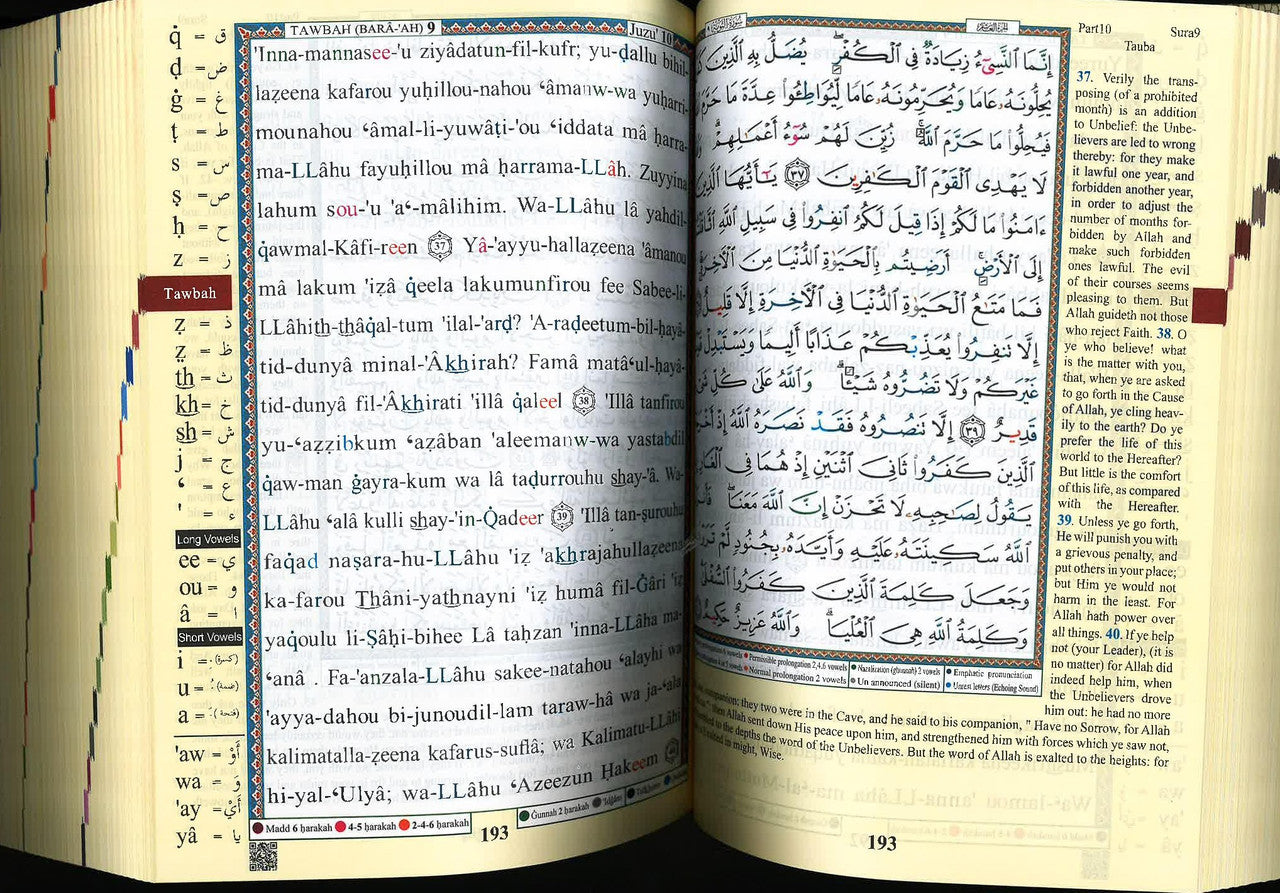 TAWBAH (BARÂ-'AH) 9
Juzu' 10
'Inna-mannasee-'u ziyâdatun-fil-kufr; yu-ḍallu bihil-
laẓeena kafarou yuḥillou-nahou ‘âmanw-wa yuḥarri-
mounahou ‘âmal-li-yuwâṭi-'ou ‘iddata mâ ḥarra-
ma-LLâhu fayuḥillou mâ ḥarrama-LLâh. Zuyyina
lahum sou-'u 'a‘-mâlihim. Wa-LLâhu lâ yahdil-
q̇awmal-Kâfi-reen 37 Yâ-'ayyu-hallaẓeena 'âmanou
mâ lakum 'iẓâ q̇eela lakumunfirou fee Sabee-li-
LLâhith-thâq̇al-tum 'ilal-'arḍ? 'A-raḍeetum-bil-ḥayâ-
tid-dunyâ minal-'Âkhirah? Famâ matâ‘ul-ḥayâ-
tid-dunyâ fil-'Âkhirati 'illâ q̇aleel 38 'Illâ tanfirou
yu-‘aẓẓibkum ‘aẓâban 'aleemanw-wa yastabdil
q̇aw-man ġayra-kum wa lâ taḍurrouhu shay-'â. Wa-
LLâhu ‘alâ kulli shay-'in-Q̇adeer 39 'Illâ tan-ṣurouhu
faq̇ad naṣara-hu-LLâhu 'iẓ 'akhrajahullaẓeena
ka-farou Thâni-yathnayni 'iẓ humâ fil-Ġâri 'iẓ
yaq̇oulu li-Ṣâḥi-bihee Lâ taḥzan 'inna-LLâha ma-
‘anâ . Fa-'anzala-LLâhu sakee-natahou ‘alayhi wa
'ayya-dahou bi-junoudil-lam taraw-hâ wa ja-‘ala
kalimatalla-ẓeena kafarus-suflâ; wa Kalimatu-LLâhu
hi-yal-‘Ulyâ; wa-LLâhu ‘Azeezun Ḥakeem 40
Madd 6 ḥarakah 4-5 ḥarakah 2-4-6 ḥarakah
Gunnah 2 ḥarakah
193
q̇ = ق
ḍ = ض
ġ = غ
ṭ = ط
s = س
ṣ = ص
ḥ = ح
z = ز
Tawbah
ẓ = ذ
ẓ̤ = ظ
th = ث
kh = خ
sh = ش
j = ج
‘ = ع
' = ء
Long Vowels
ee = ي
ou = و
â = ا
Short Vowels
i = (كسرة)
u = (ضمة)
a = (فتحة)
'aw = أَوْ
wa = وَ
'ay = أَيْ
yâ = يا
إِنَّمَا ٱلنَّسِىٓءُ زِيَادَةٌ فِى ٱلْكُفْرِ يُضَلُّ بِهِ ٱلَّذِينَ
يُحِلُّونَهُۥ عَامًا وَيُحَرِّمُونَهُۥ عَامًا لِّيُوَاطِـُٔوا۟ عِدَّةَ مَا حَرَّمَ
فَيُحِلُّوا۟ مَا حَرَّمَ ٱللَّهُ زُيِّنَ لَهُمْ سُوٓءُ أَعْمَـٰلِهِمْ
لَا يَهْدِى ٱلْقَوْمَ ٱلْكَـٰفِرِينَ ٣٧ يَـٰٓأَيُّهَا ٱلَّذِينَ
ءَامَنُوا۟ مَا لَكُمْ إِذَا قِيلَ لَكُمُ ٱنفِرُوا۟ فِى سَبِيلِ ٱللَّهِ
إِلَى ٱلْأَرْضِ أَرَضِيتُم بِٱلْحَيَوٰةِ ٱلدُّنْيَا مِنَ ٱلْأَخِرَةِ
فَمَا مَتَـٰعُ ٱلْحَيَوٰةِ ٱلدُّنْيَا فِى ٱلْأَخِرَةِ إِلَّا قَلِيلٌ
إِلَّا تَنفِرُوا۟ يُعَذِّبْكُمْ عَذَابًا أَلِيمًا وَيَسْتَبْدِلْ
غَيْرَكُمْ وَلَا تَضُرُّوهُ شَيْـًٔا وَٱللَّهُ عَلَىٰ كُلِّ
قَدِيرٌ ٣٩ إِلَّا تَنصُرُوهُ فَقَدْ نَصَرَهُ ٱللَّهُ إِذْ
ٱلَّذِينَ كَفَرُوا۟ ثَانِىَ ٱثْنَيْنِ إِذْ هُمَا فِى
يَقُولُ لِصَـٰحِبِهِۦ لَا تَحْزَنْ إِنَّ ٱللَّهَ مَعَنَا
ٱللَّهُ سَكِينَتَهُۥ عَلَيْهِ وَأَيَّدَهُۥ بِجُنُودٍ لَّمْ
وَجَعَلَ كَلِمَةَ ٱلَّذِينَ كَفَرُوا۟ ٱلسُّفْلَىٰ
وَكَلِمَةُ ٱللَّهِ هِىَ ٱلْعُلْيَا وَٱللَّهُ عَزِيزٌ حَكِيمٌ
Permissible prolongation 2,4,6 vowels Nazalization (ghunnah) 2 vowels Emphatic pronunciation
Normal prolongation 2 vowels Un announced (silent) Unrest letters (Echoing Sound)
Part10
Sura9
Tauba
37. Verily the trans-
posing (of a prohibited
month) is an addition
to Unbelief: the Unbe-
lievers are led to wrong
thereby: for they make
it lawful one year, and
forbidden another year,
in order to adjust the
number of months for-
bidden by Allah and
make such forbidden
ones lawful. The evil
of their courses seems
pleasing to them. But
Allah guideth not those
who reject Faith. 38. O
ye who believe! what
is the matter with you,
that, when ye are asked
to go forth in the Cause
of Allah, ye cling heav-
ily to the earth? Do ye
prefer the life of this
world to the Hereafter?
But little is the comfort
of this life, as compared
with the Hereafter.
39. Unless ye go forth,
He will punish you with
a grievous penalty, and
put others in your place;
but Him ye would not
harm in the least. For
Allah hath power over
all things. 40. If ye help
not (your Leader), (it is
no matter) for Allah did
indeed help him, when
the Unbelievers drove
him out: he had no more
companion; they two were in the Cave, and he said to his companion, " Have no Sorrow, for Allah
Allah sent down His peace upon him, and strengthened him with forces which ye saw not,
to the depths the word of the Unbelievers. But the word of Allah is exalted to the heights: for
in might, Wise.
193